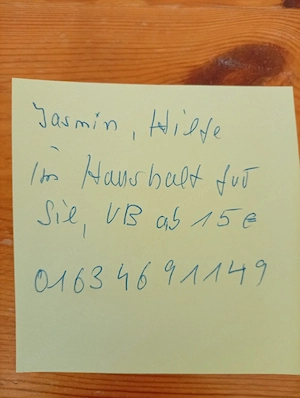 Jasmin, Hilfe
im Haushalt für
Sie, VB ab 15€
0163 46 91149